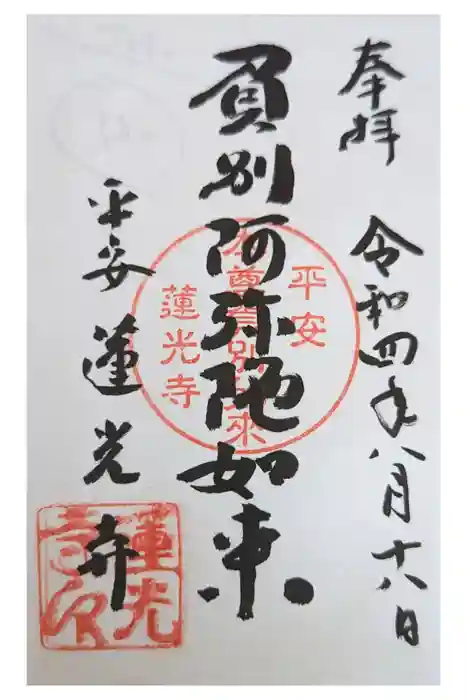 奉拝
令和四年八月十八日
負別阿弥陀如来
平安
蓮光寺
平安
本尊負別如來
蓮光寺
蓮光
寺印